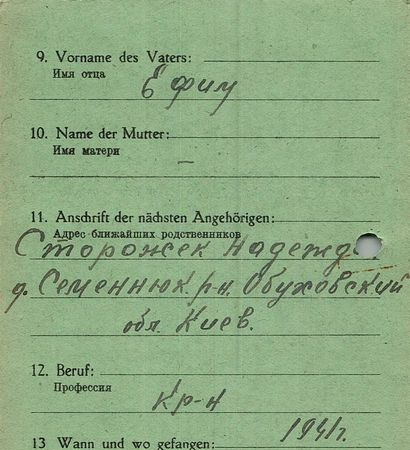 9. Vorname des Vaters:
Имя отца
Ефим
10. Name der Mutter:
Имя матери
—
11. Anschrift der nächsten Angehörigen:
Адрес ближайших родственников
Сторожек Надежд
д. Семеннюк. р-н. Обуховский
обл. Киев.
12. Beruf:
Профессия
кр-н
1941г.
13 Wann und wo gefangen: